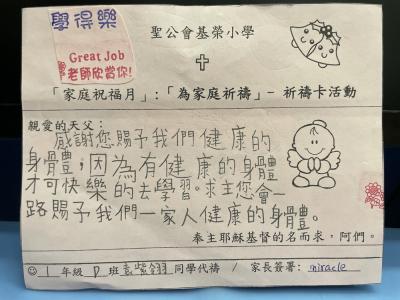 學得樂
Great Job
老師欣賞你!
聖公會基榮小學
「家庭祝福月」:「為家庭祈禱」- 祈禱卡活動
親愛的天父:
感謝您賜予我們健康的
身體,因為有健康的身體
才可快樂的去學習。求主您會一
路賜予我們一家人健康的身體。
奉主耶穌基督的名而求,阿們。
☺ 1 年級 D 班 袁紫翎 同學代禱 / 家長簽署: miracle